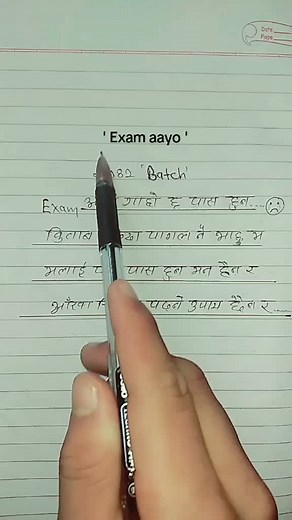 Date
Page
' Exam aayo '
082 'Batch'
Exam गाह्रो छ पास हुन....
किताब पागल नै भाछु म
मलाई पास हुन मन छैन र
आँखा पढ्ने उपाय छैन र....